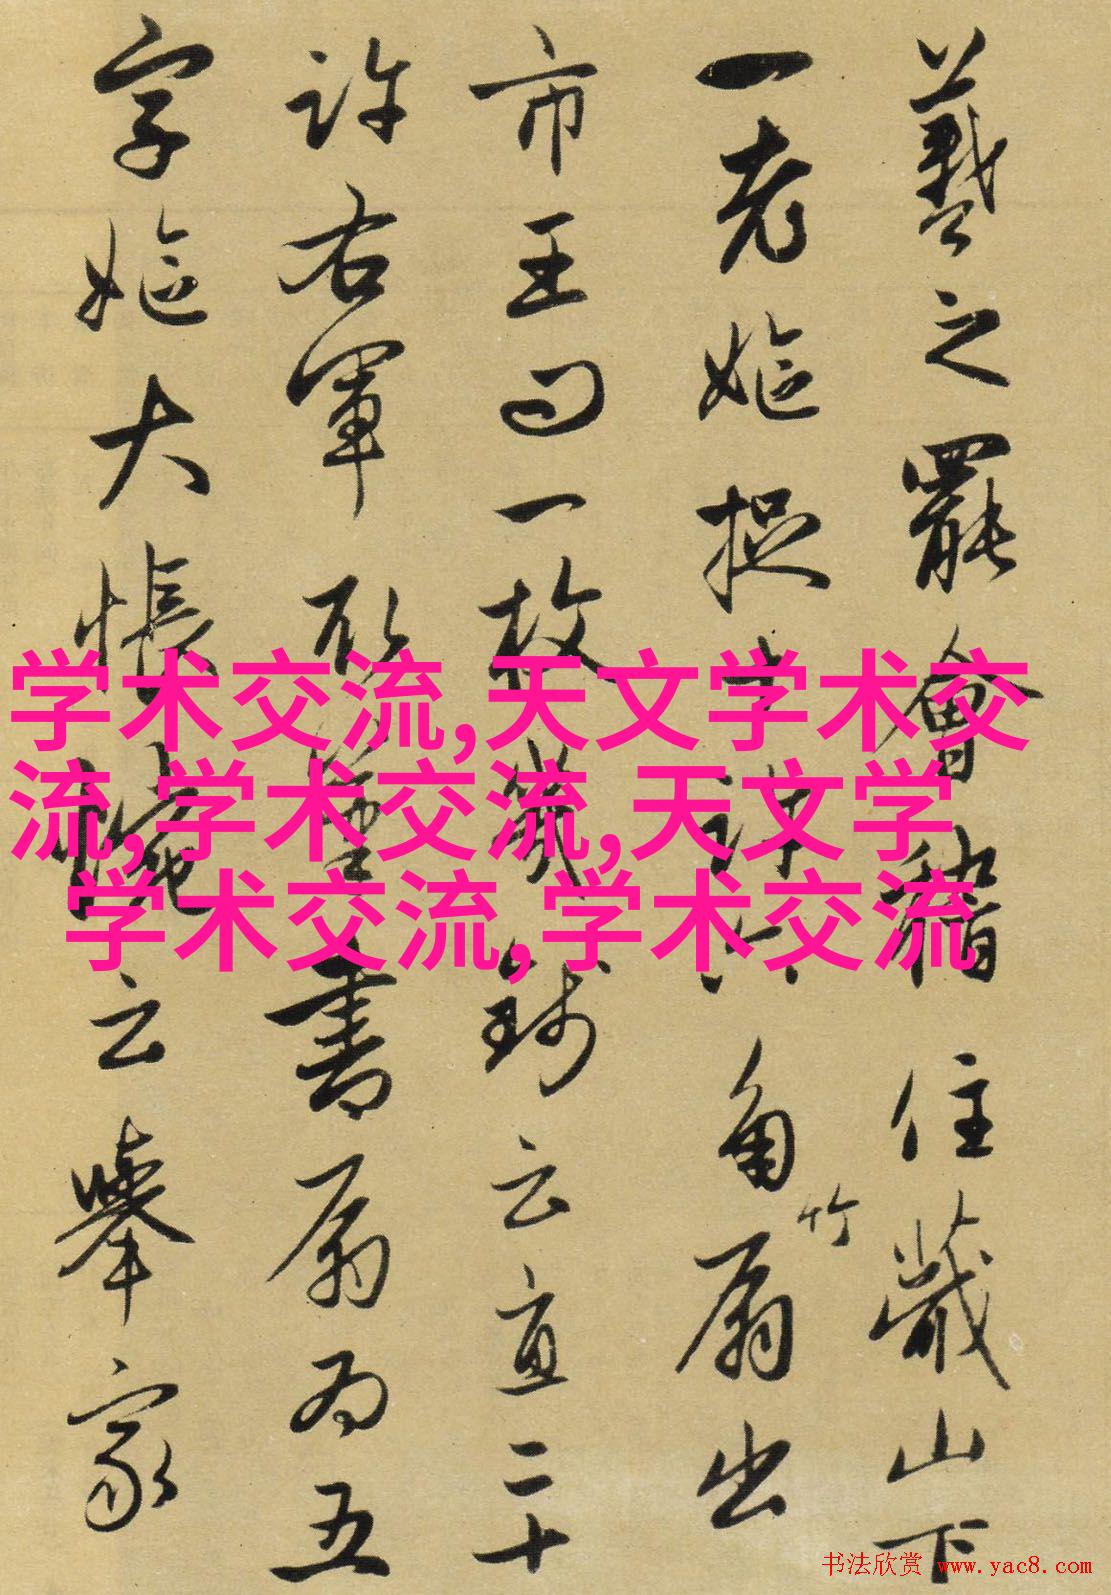 羲之罷會稽住蕺山下
一老嫗捉
角扇出
竹
市王问一枚幾錢云直二十
許右軍取筆書扇为五
字嫗大悵惋云舉家
学术交流,天文学术交
流,学术交流,天文学
学术交流,学术交流
书法欣赏 www.yac8.com